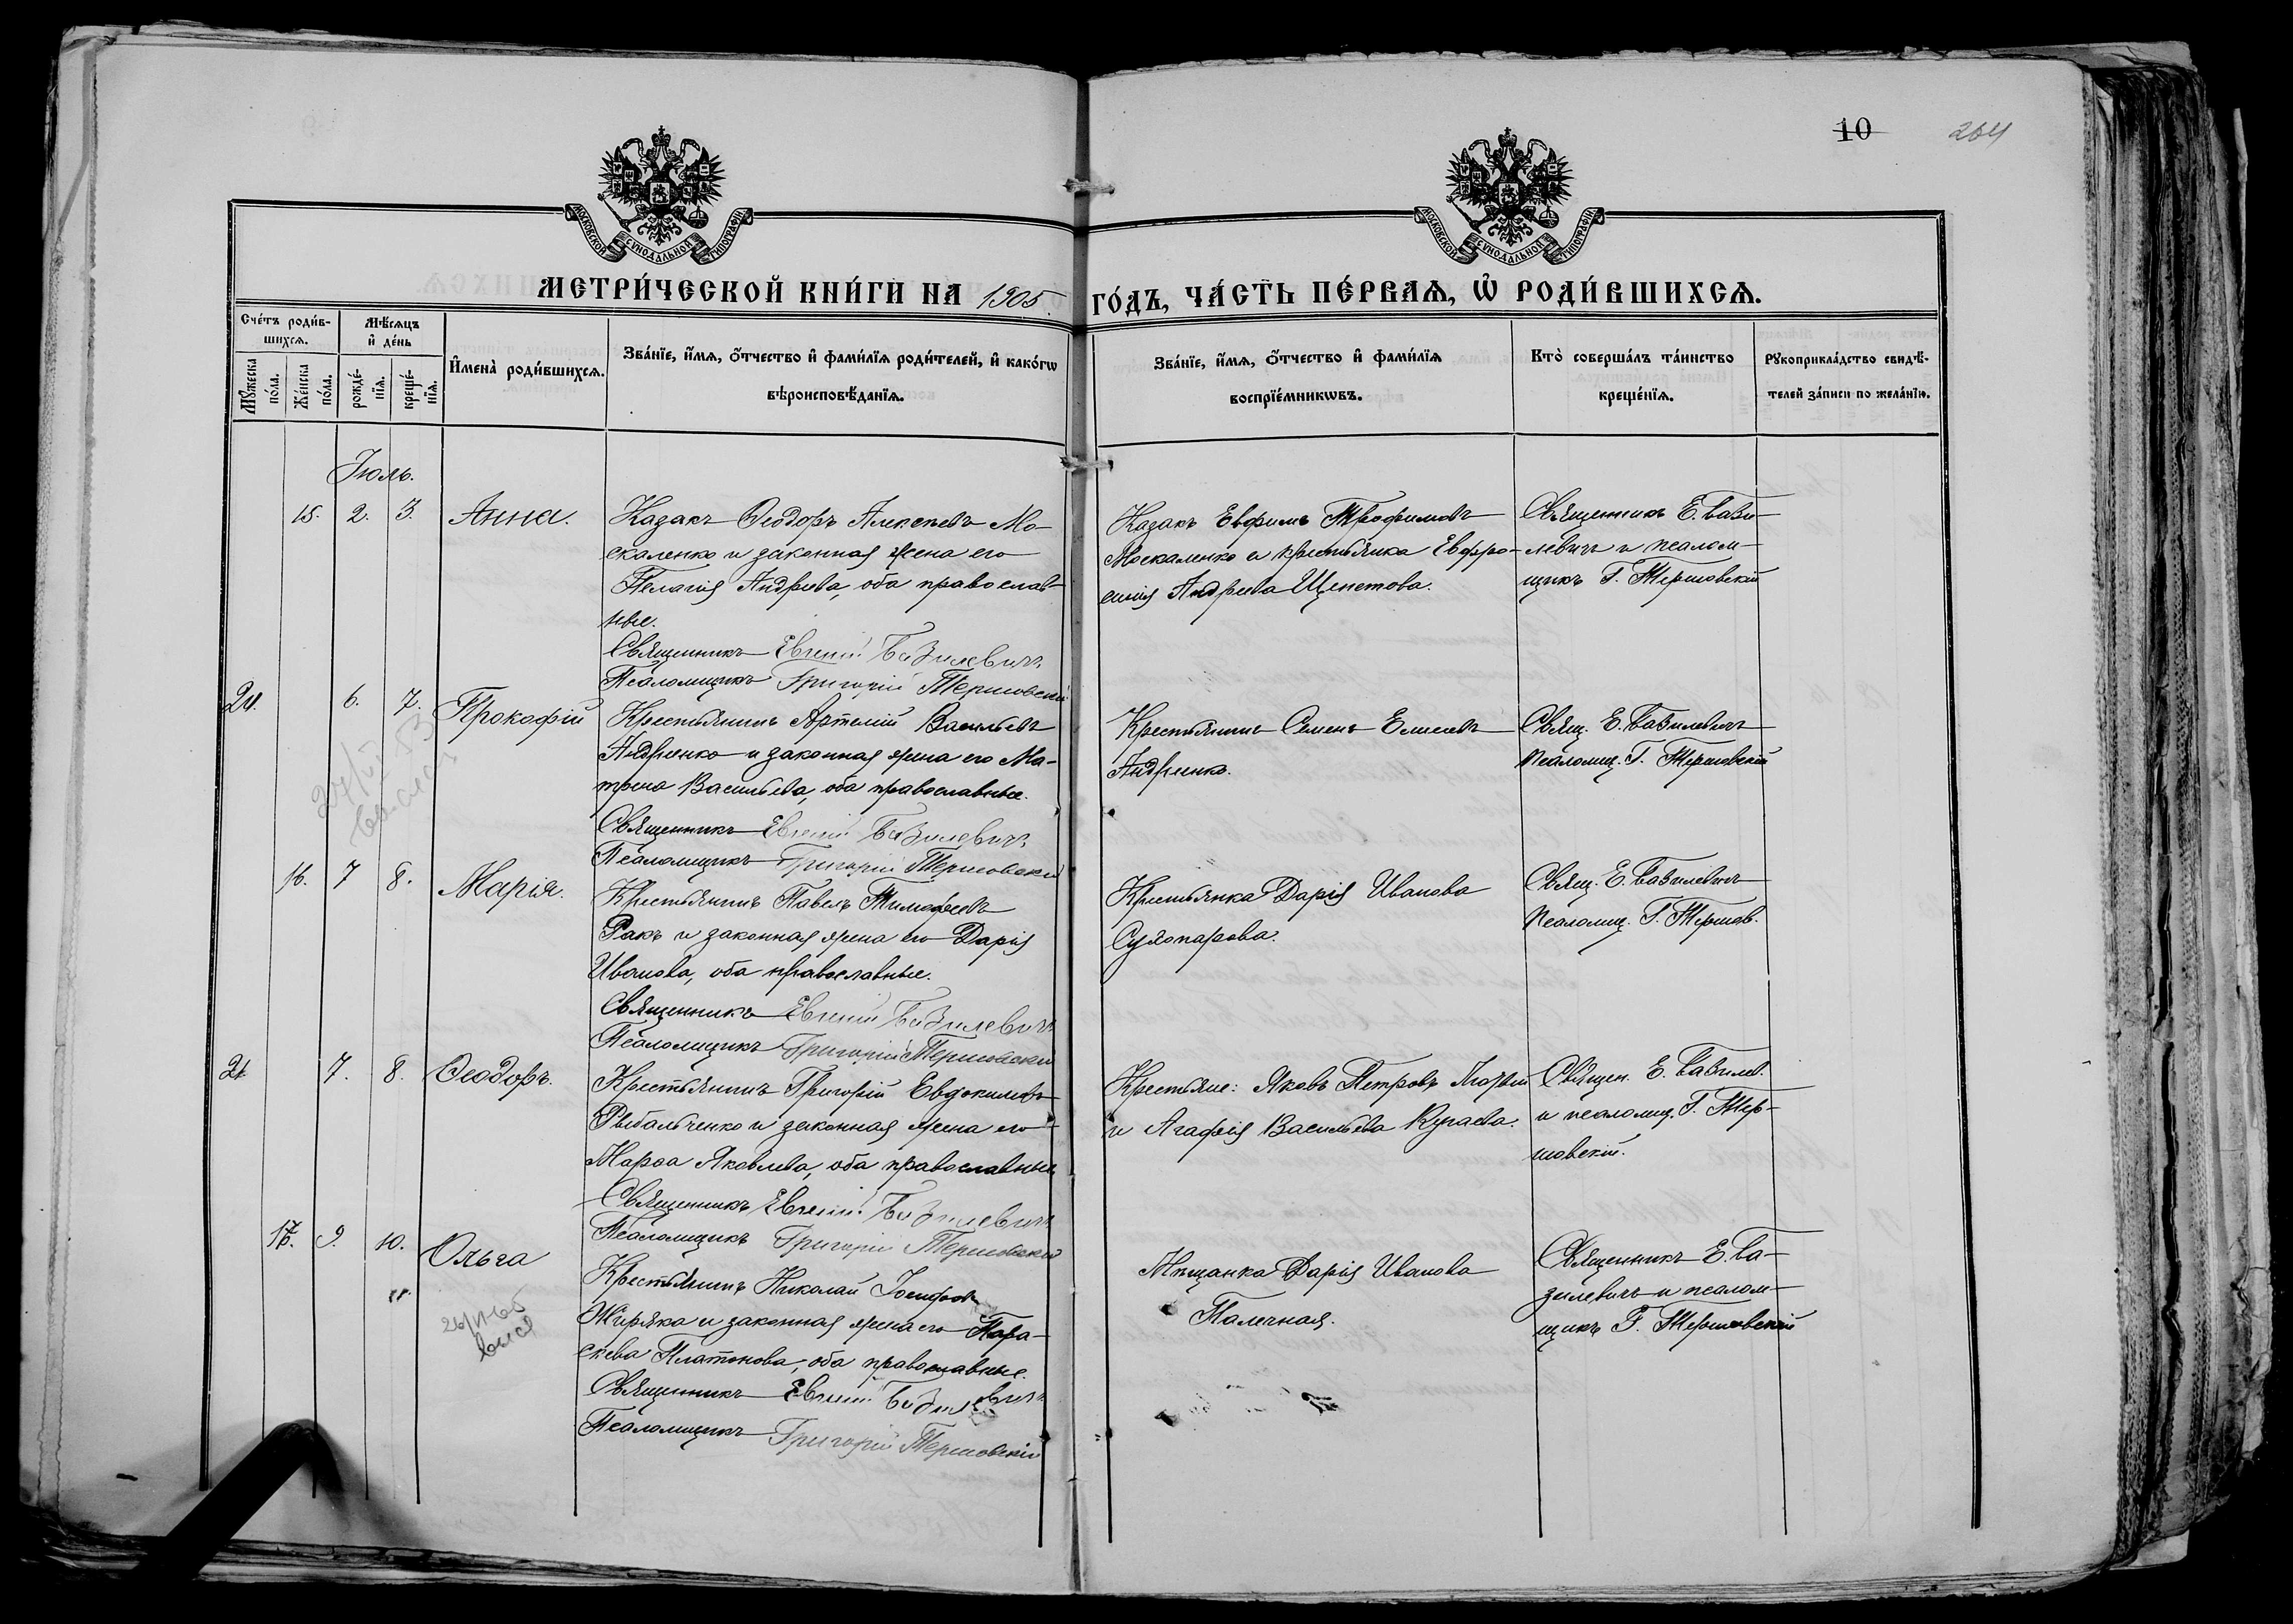 10 264
МОСКОВСКОЙ СУНОДАЛЬНОЙ ТИПОГРАФІИ
МОСКОВСКОЙ СУНОДАЛЬНОЙ ТИПОГРАФІИ
МЕТРИ́ЧЕСКОЙ КНИ́ГИ НА 1905 ГО́ДЪ, ЧА́СТЬ ПЕ́РВАѦ, Ѡ҆ РОДИ́ВШИХСѦ.
Сче́тъ роди́в-
шихсѧ.
Мꙋжеска по́ла.
Же́нска по́ла.
Мѣ́сѧцъ
и҆ де́нь
рожде́-
нїѧ.
креще́-
нїѧ.
И҆мена̀ роди́вшихсѧ.
Зва́нїе, и҆́мѧ, ѻ҆́тчество и҆ фами́лїѧ роди́телей, и҆ како́гѡ
вѣроисповѣ́данїѧ.
Зва́нїе, и҆́мѧ, ѻ҆́тчество и҆ фами́лїѧ
воспрїе́мникѡвъ.
Кто̀ соверша́лъ та́инство
креще́нїѧ.
Рꙋкоприкла́дство свидѣ́-
телей за́писи по жела́нїю.
Іюль.
15. 2. 3. Анна.
Казакъ Ѳеодоръ Алексѣевъ Мо-
скаленко и законная жена его
Пелагія Андреева, оба православ-
ные.
Священникъ Евгеній Базилевичъ
Псаломщикъ Григорій Терновскій
Казакъ Евфимъ Трофимовъ
Москаленко и крестьянка Евфро-
синія Андреева Щепетова.
Священникъ Е. Бази-
левичъ и псалом-
щикъ Г. Терновскій
20. 6. 7. Прокофій
Крестьянинъ Артемій Васильевъ
Андріенко и законная жена его Ма-
трона Васильева, оба православные.
Священникъ Евгеній Базилевичъ
Псаломщикъ Григорій Терновскій
Крестьянинъ Семенъ Елисеевъ
Андріенко.
Свящ. Е. Базилевичъ
Псаломщ. Г. Терновскій
16. 7 8. Марія.
Крестьянинъ Павелъ Тимофеевъ
Ракъ и законная жена его Дарія
Иванова, оба православные.
Священникъ Евгеній Базилевичъ
Псаломщикъ Григорій Терновскій
Крестьянка Дарія Иванова
Сухопарова.
Свящ. Е. Базилевичъ
Псаломщ. Г. Тернов.
21 7. 8. Ѳеодоръ.
Крестьянинъ Григорій Евдокимовъ
Рыбальченко и законная жена его
Марѳа Яковлева, оба православные
Священникъ Евгеній Базилевичъ
Псаломщикъ Григорій Терновскій
Крестьяне: Яковъ Петровъ
и Агафія Васильева
Священ. Е. Базилев.
и псаломщ. Г. Тер-
новскій.
17. 9. 10. Ольга
Крестьянинъ Николай Іосифовъ
Жиряка и законная жена его Пара-
скева Платонова, оба православные.
Священникъ Евгеній Базилевичъ
Псаломщикъ Григорій Терновскій
Мѣщанка Дарія Иванова
Палечная.
Священникъ Е. Ба-
зилевичъ и псалом-
щикъ Г. Терновскій